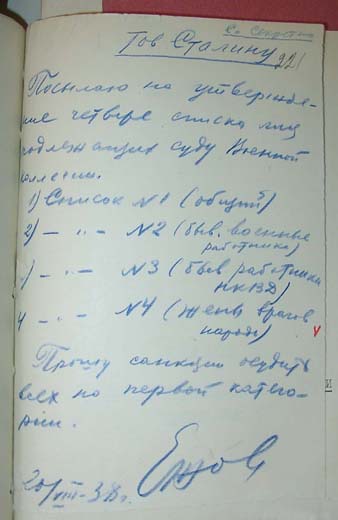 Сов. Секретно
Тов Сталину
Посылаю на утвержде-
ние четыре списка лиц
подлежащих суду Военной
коллегии.
1) Список №1 (общий)
2) – " – №2 (быв. военные
работники)
) – " – №3 (быв работники
НКВД)
4 – " – №4 (жены врагов
народа)
Прошу санкции осудить
всех по первой катего-
рии.
Ежов
20/VIII-38г.